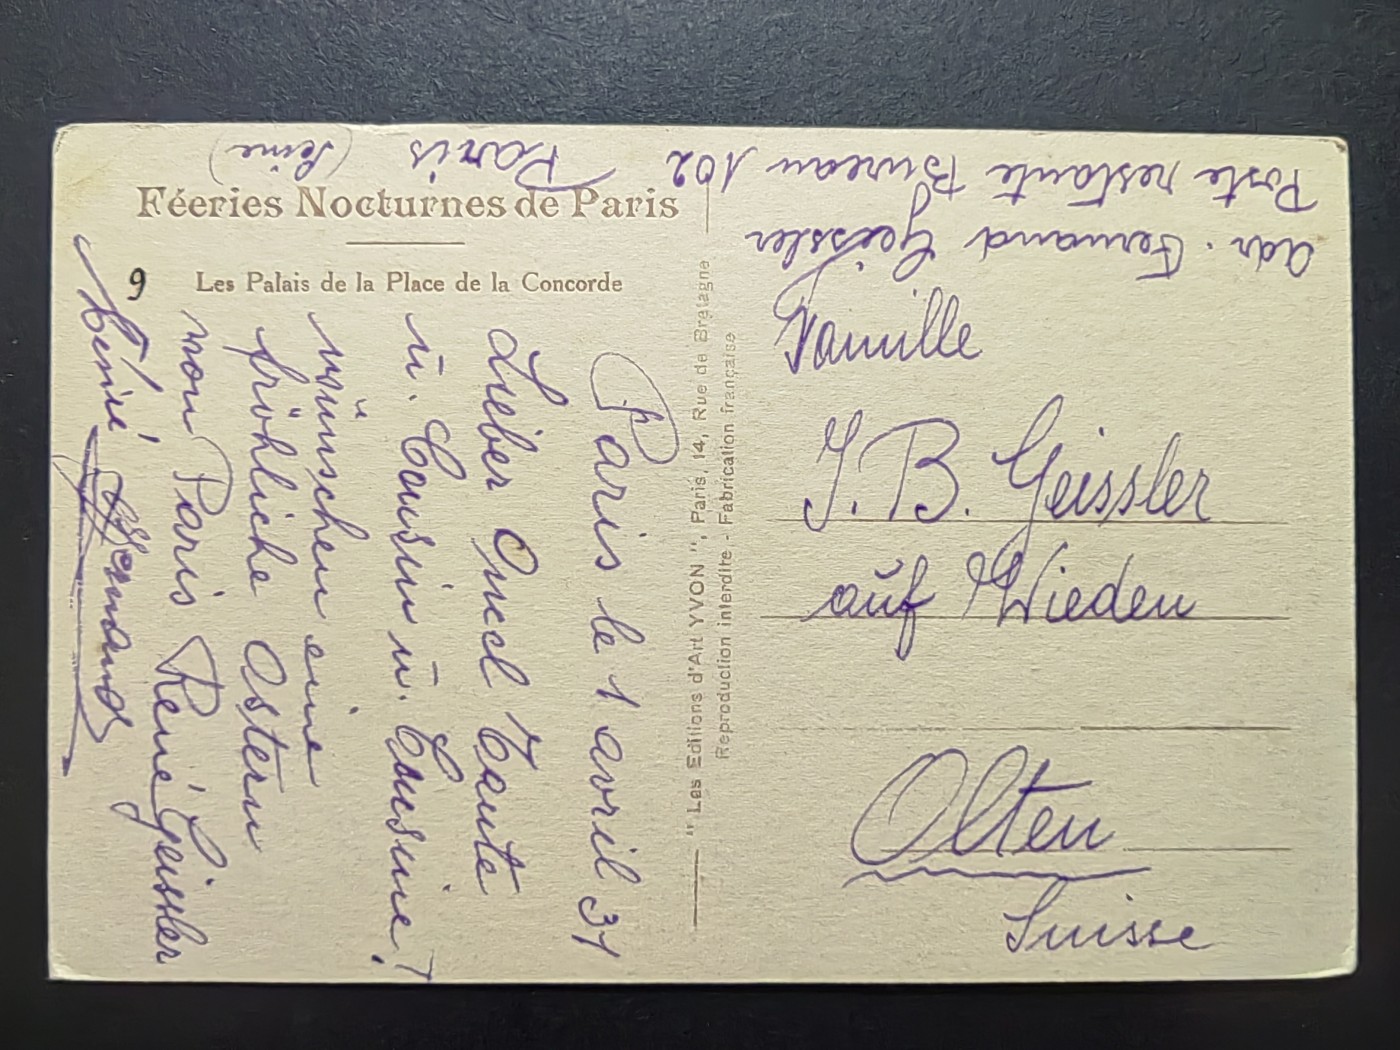 Féeries Nocturnes de Paris
9 Les Palais de la Place de la Concorde
Paris le 1 avril 31
Lieber Oncel Tante
u. Cousin u. Cusine!
wünschen eine
fröhliche Ostern
von Paris René Geissler
Fernand
" Les Editions d'Art YVON ", Paris, 14, Rue de Bretagne
Reproduction interdite - Fabrication française
adr. Fernand Geissler
Poste restante Bureau 102 Paris (Seine)
Familie
J. B. Geissler
auf Wieden
Olten
Suisse